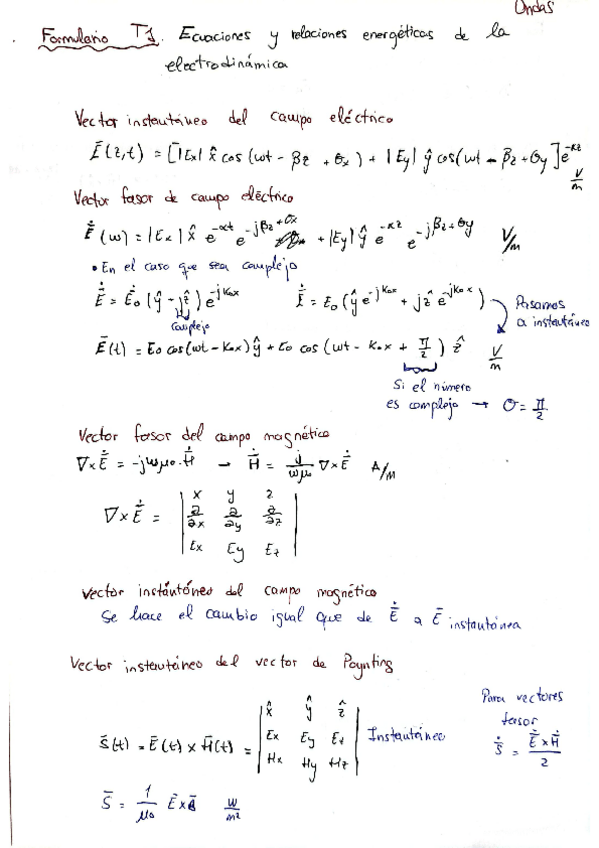 Ondas
Formulario T1. Ecuaciones y relaciones energéticas de la
electrodinámica
Vector instantáneo del campo eléctrico
Ē(z,t) = [|Ex| x̂ cos(ωt - βz + θx) + |Ey| ŷ cos(ωt - βz + θy)] e^-αz V/m
Vector fasor de campo eléctrico
Ē̇(ω) = |Ex| x̂ e^-αz e^-jβz+θx + |Ey| ŷ e^-αz e^-jβz+θy V/m
• En el caso que sea complejo
Ē̇ = Ē̇o (ŷ - jẑ) e^-jKox Ē̇ = Eo (ŷ e^-jKox + jẑ e^-jKox) Pasamos
complejo a instantáneo
Ē(t) = Eo cos(ωt - Kox) ŷ + Eo cos(ωt - Kox + π/2) ẑ V/m
Si el número
es complejo → θ = π/2
Vector fasor del campo magnético
∇×Ē̇ = -jωμo·Ḣ̄ - Ḣ̄ = j/ωμ ∇×Ē̇ A/M
∇×Ē̇ = | x y z |
| ∂/∂x ∂/∂y ∂/∂z |
| Ex Ey Ez |
Vector instántáneo del campo magnético
Se hace el cambio igual que de Ē̇ a Ē instantánea
Vector instantáneo del vector de Poynting
S̄(t) = Ē(t) × H̄(t) = | x̂ ŷ ẑ |
| Ex Ey Ez | Instantáneo
| Hx Hy Hz |
Para vectores
fasor
Ṡ̄ = Ē̇×Ḣ̄/2
S̄ = 1/μo Ē×B̄ W/m²